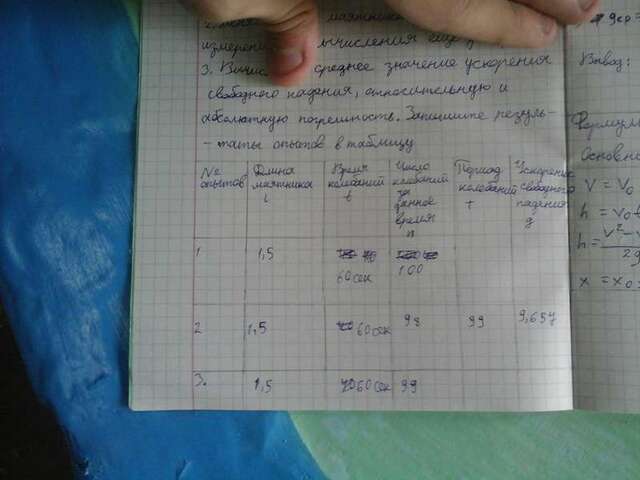 Вывод:
Формулы
Основн
V = V₀
h = V₀t
h = V² -
2g
x = x₀
измерени
вычисления
3. Вычислите среднее значение ускорения
свободного падения, относительную и
абсолютную погрешность. Запишите резуль-
- таты опытов в таблицу
№ опытов | Длина маятника L | Время колебаний t | Число колебаний за данное время n | Период колебаний T | Ускорение свободного падения g
1 | 1,5 | 60 сек | 100
2 | 1,5 | 60 сек | 98 | 99 | 9,657
3. | 1,5 | 60 сек | 99